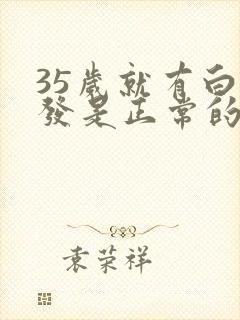 35歲就有白
發是正常的
袁荣祥